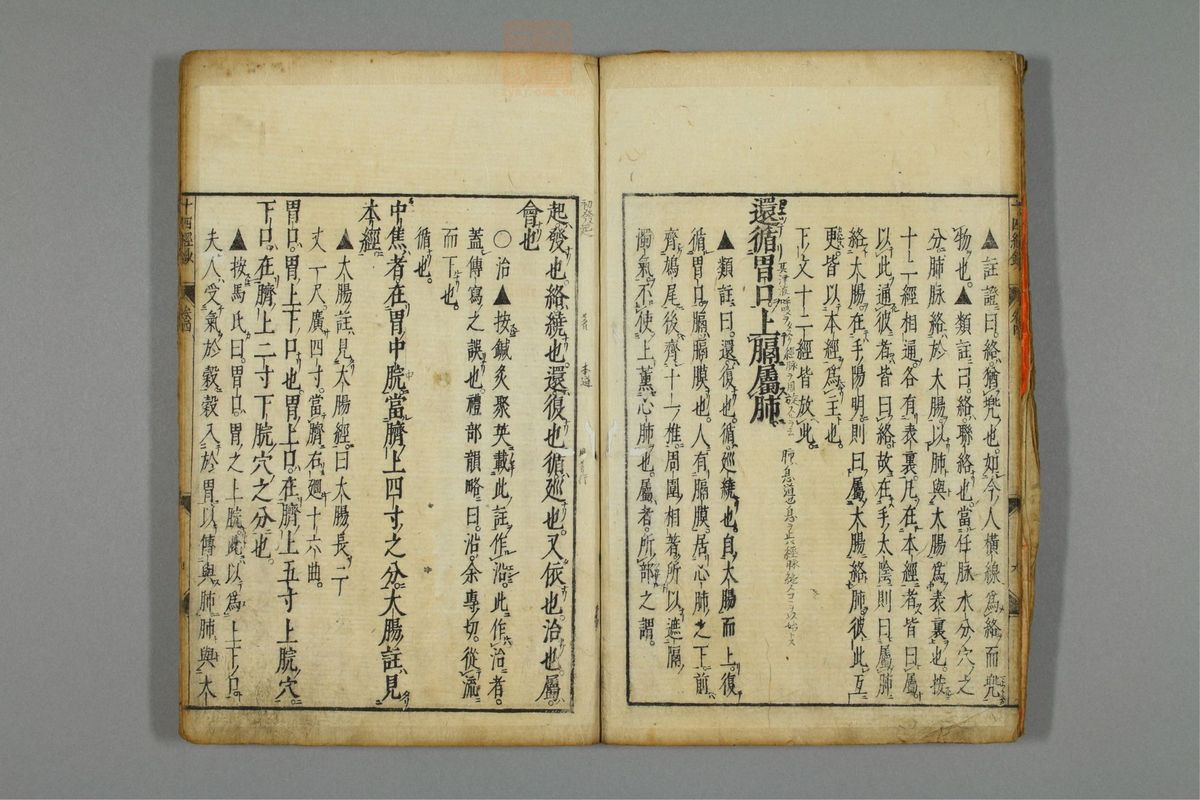 ▲註證曰絡猶兜也如今人橫線爲絡而兜
物也。▲類註曰。絡聯絡也。當任脉水分穴之
分肺脉絡於大腸以肺與大腸爲表裏也。按
十二經相通各有表裏凡在本經者皆曰屬
以此通彼者皆曰絡。故在手太陰則曰屬肺
絡大腸在手陽明則曰屬大腸絡肺彼此互
更皆以本經爲主也。
下文十二經皆放此。
還循胃口。上膈屬肺
▲類註曰。還復也。循巡繞也。自大腸而上。復
循胃口。膈膈膜也。人有膈膜居心肺之下。前
齊鳩尾後齊十一椎。周圍相著所以遮隔
濁氣不使上薰心肺也。屬者。所部之謂。
起發也。絡繞也。還復也循巡也。又依也沿也。屬
會也
○沿▲按鍼灸聚英載此註作沿。此作治者。
蓋傳寫之誤也。禮部韻略曰。沿。余專切。從流
而下也。
循也。
中焦者在胃中脘當臍上四寸之分。大腸註見
本經
▲大腸註見大腸經。曰大腸長二
丈一尺廣四寸。當臍右廻十六曲。
胃口。胃上下口也胃上口。在臍上五寸上脘穴。
下口。在臍上二寸下脘穴之分也。
▲按馬氏曰。胃口。胃之上脘此以爲上下口。
夫人受氣於穀穀入於胃以傳與肺肺與大